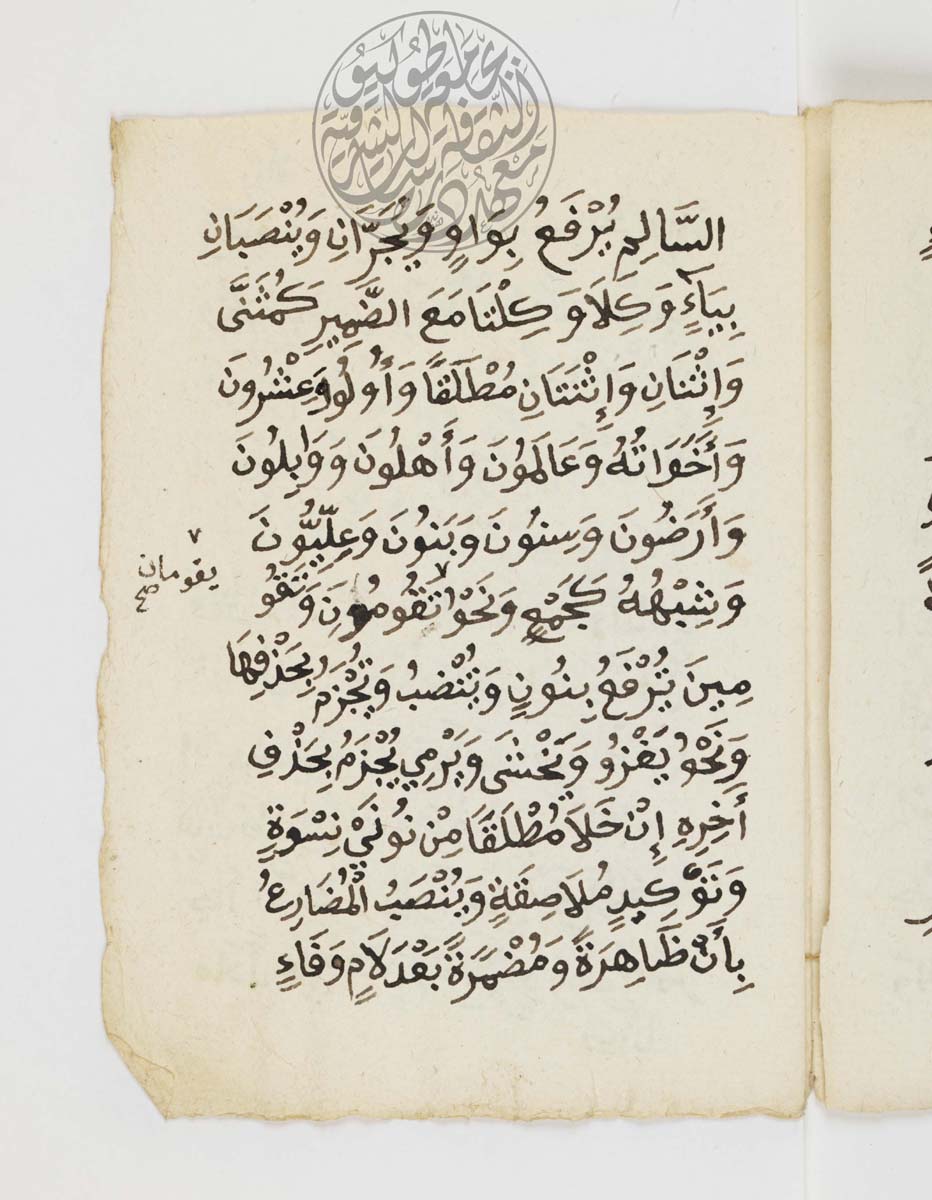 معهد الثقافة والدراسات الشرقية
جامعة طوكيو
السَّالِمِ يُرْفَعُ بِوَاوٍ وَيُجَرَّانِ وَيُنْصَبَانِ
بِيَاءٍ وَكِلَا وَكِلْتَا مَعَ الضَّمِيرِ كَمُثَنَّى
وَإِثْنَانِ وَإِثْنَتَانِ مُطْلَقًا وَأُولُو وَعِشْرُونَ
وَأَخَوَاتُهُ وَعَالَمُونَ وَأَهْلُونَ وَوَابِلُونَ
وَأَرَضُونَ وَسِنُونَ وَبَنُونَ وَعِلِّيُّونَ
وَشِبْهُهُ كَجَمْعٍ وَنَحْوُ تَقُومُونَ وَتَقُو
يقومان صح
مِينَ تُرْفَعُ بِنُونٍ وَتُنْصَبُ وَتُجْزَمُ بِحَذْفِهَا
وَنَحْوُ يَغْزُو وَيَخْشَى وَيَرْمِي يُجْزَمُ بِحَذْفِ
أَخِرِهِ إِنْ خَلَا مُطْلَقًا مِنْ نُونَيْ نِسْوَةٍ
وَتَوْكِيدٍ مُلَاصِقَةٍ وَيُنْصَبُ الْمُضَارِعُ
بِأَنْ ظَاهِرَةً وَمُضْمَرَةً بَعْدَ لَامٍ وَفَاءٍ